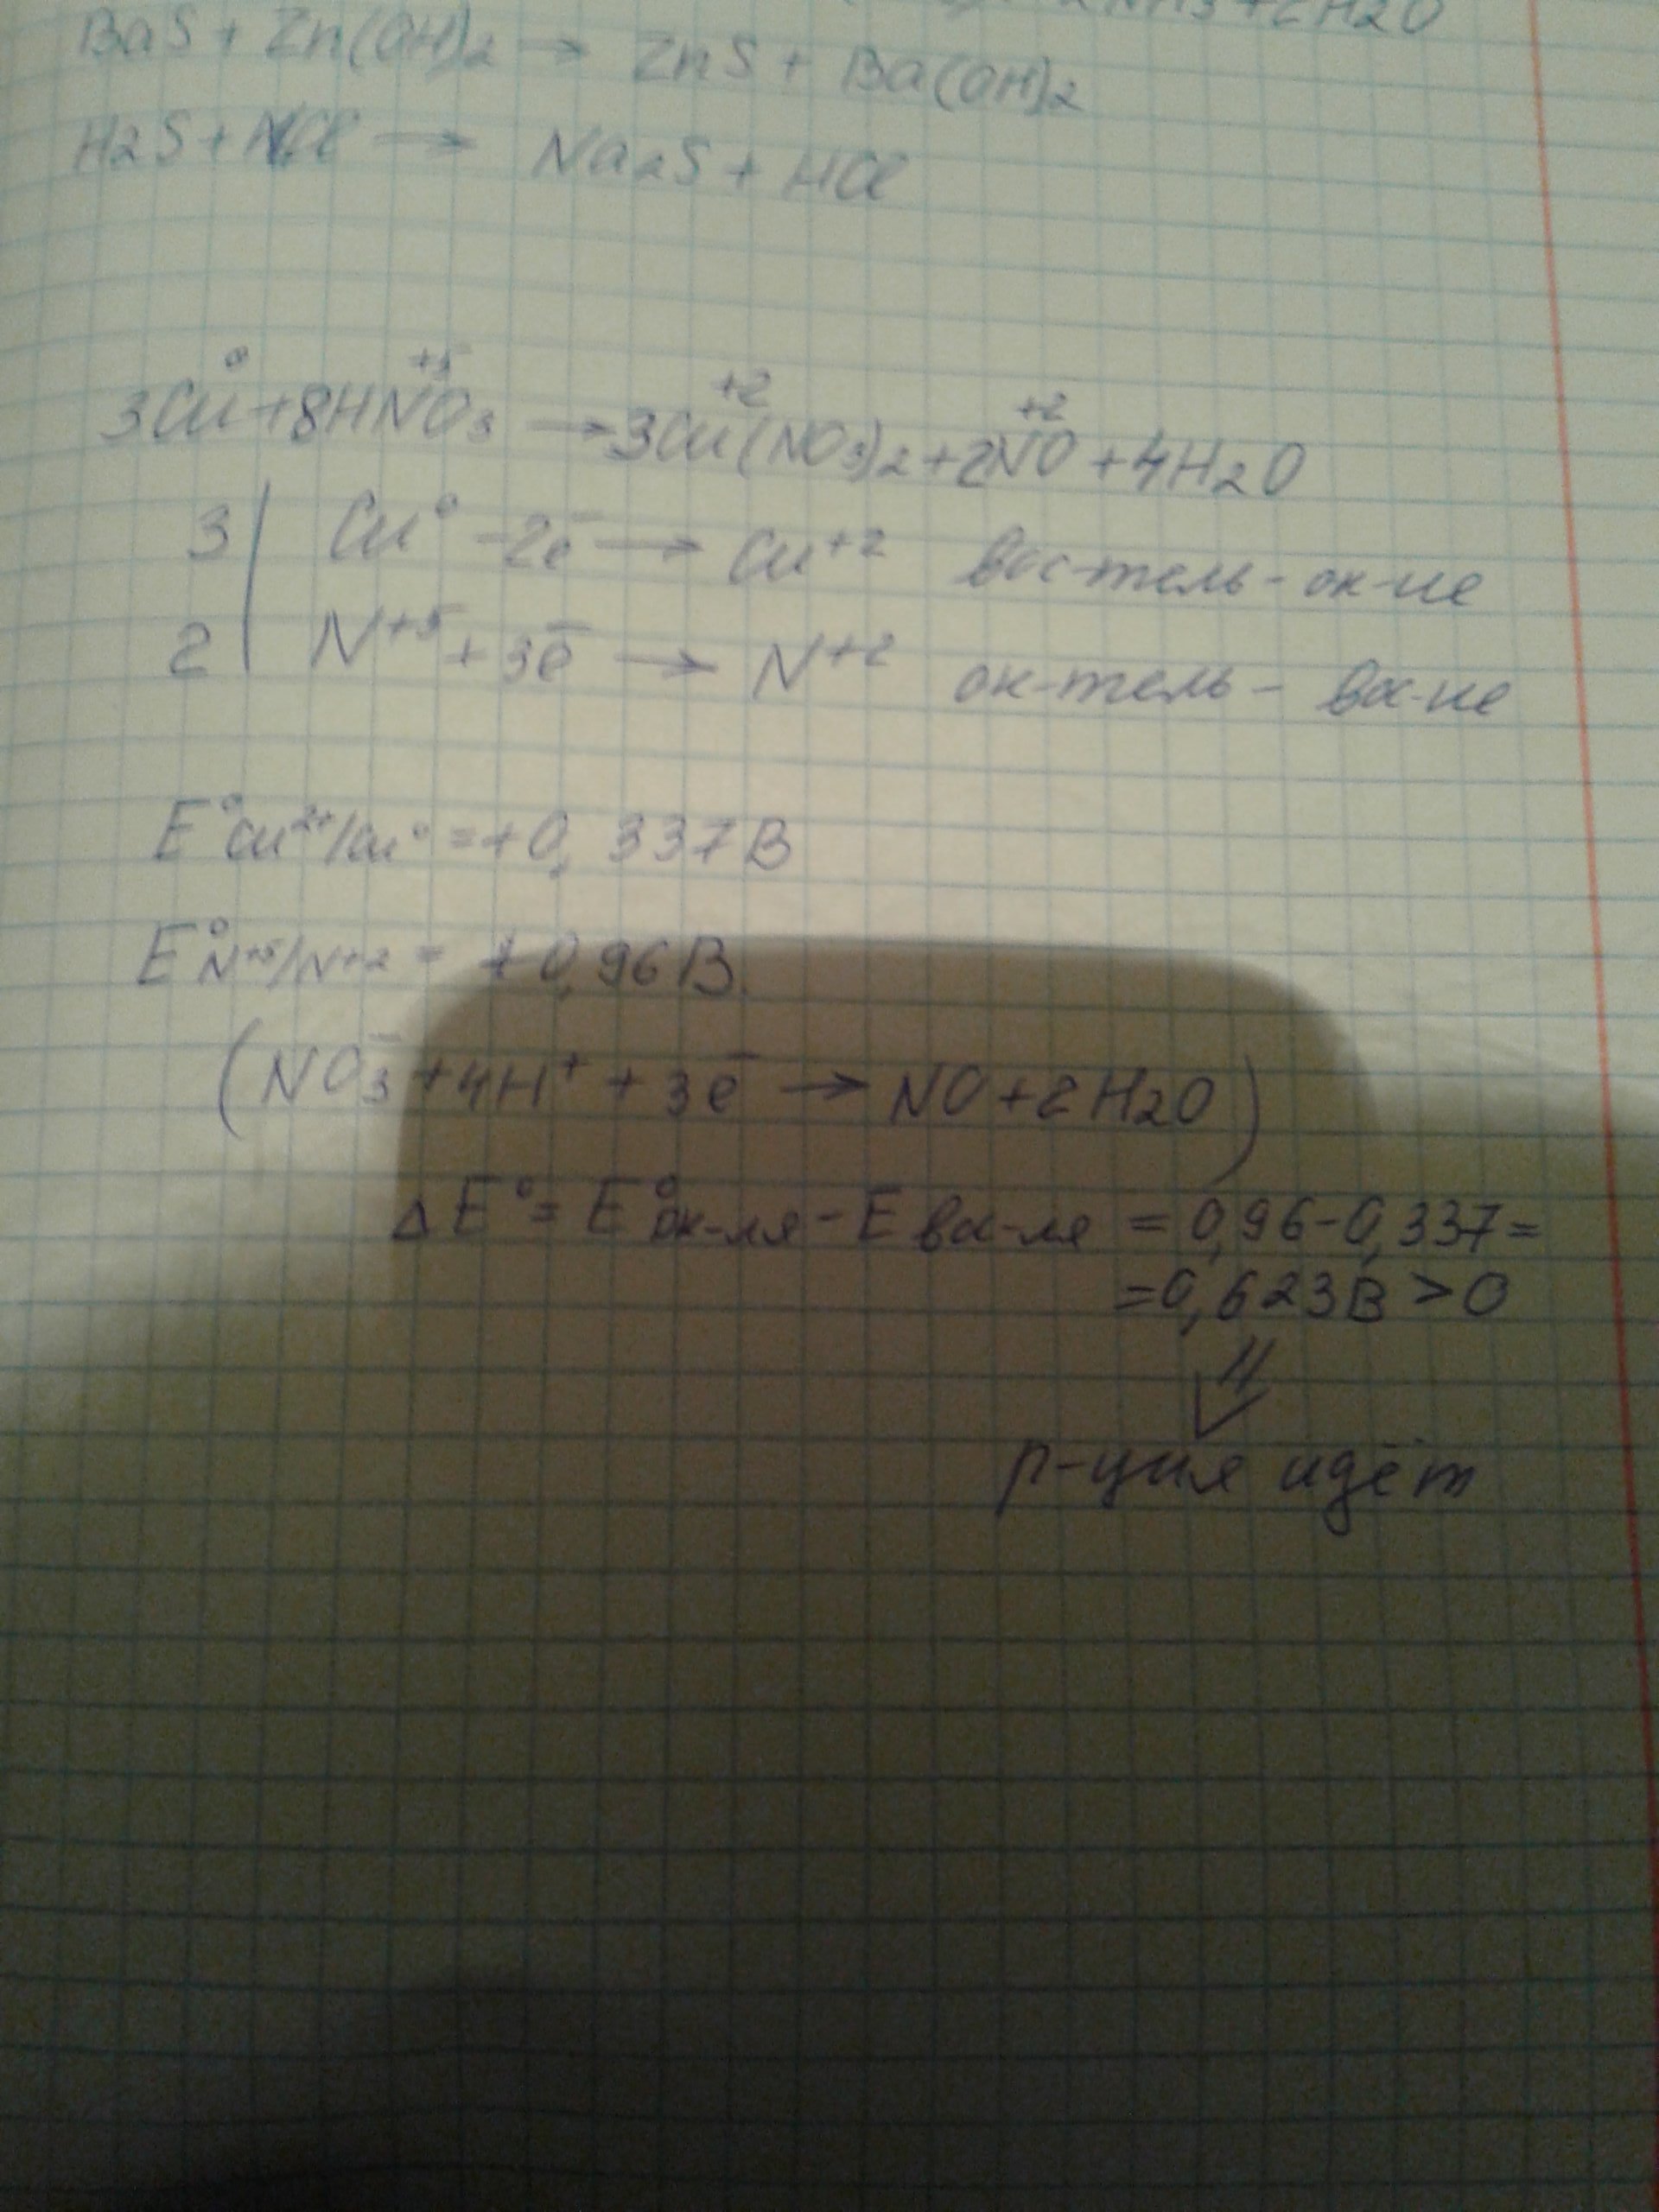 2NH3+2H2O
BaS + Zn(OH)2 → ZnS + Ba(OH)2
H2S + Cl → Na2S + HCl
0 +5 +2 +2
3Cu + 8HNO3 → 3Cu(NO3)2 + 2NO + 4H2O
3 | Cu⁰ - 2e⁻ → Cu⁺² вос-тель - ок-ие
2 | N⁺⁵ + 3e⁻ → N⁺² ок-тель - вос-ие
E°Cu²⁺/Cu⁰ = +0,337В
E°N⁺⁵/N⁺² = +0,96В.
(NO3⁻ + 4H⁺ + 3e⁻ → NO + 2H2O)
ΔE° = E°ок-ля - E вос-ля = 0,96-0,337=
=0,623В > 0
⇓
р-ция идёт